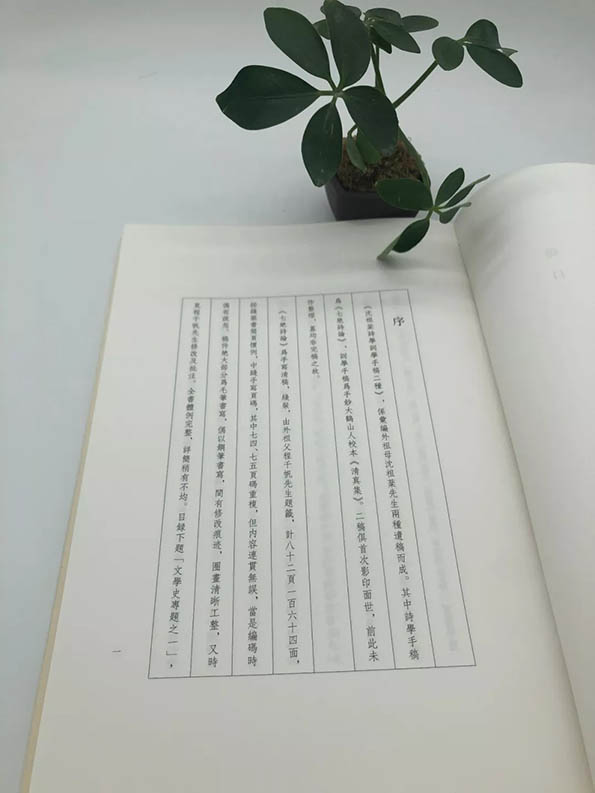 序
《沈祖棻詩學詞學手稿二種》，係彙編外祖母沈祖棻先生兩種遺稿而成。其中詩學手稿
爲《七絶詩論》，詞學手稿爲手鈔大鶴山人校本《清真集》。二稿俱首次影印面世，前此未
作整理，蓋均非完稿之故。
《七絶詩論》爲手寫清稿，綫裝，由外祖父程千帆先生題籤，計八十二頁一百六十四面，
按綫裝書標頁慣例，中縫手寫頁碼，其中七四、七五頁碼重複，但内容連貫無誤，當是編碼時
偶有疏忽。稿件絶大部分爲毛筆書寫，偶以鋼筆書寫，間有修改痕迹，圈畫清晰工整，又時
見程千帆先生修改及批注。全書體例完整，詳簡稍有不均。目録下題「文學史專題之一」，
一